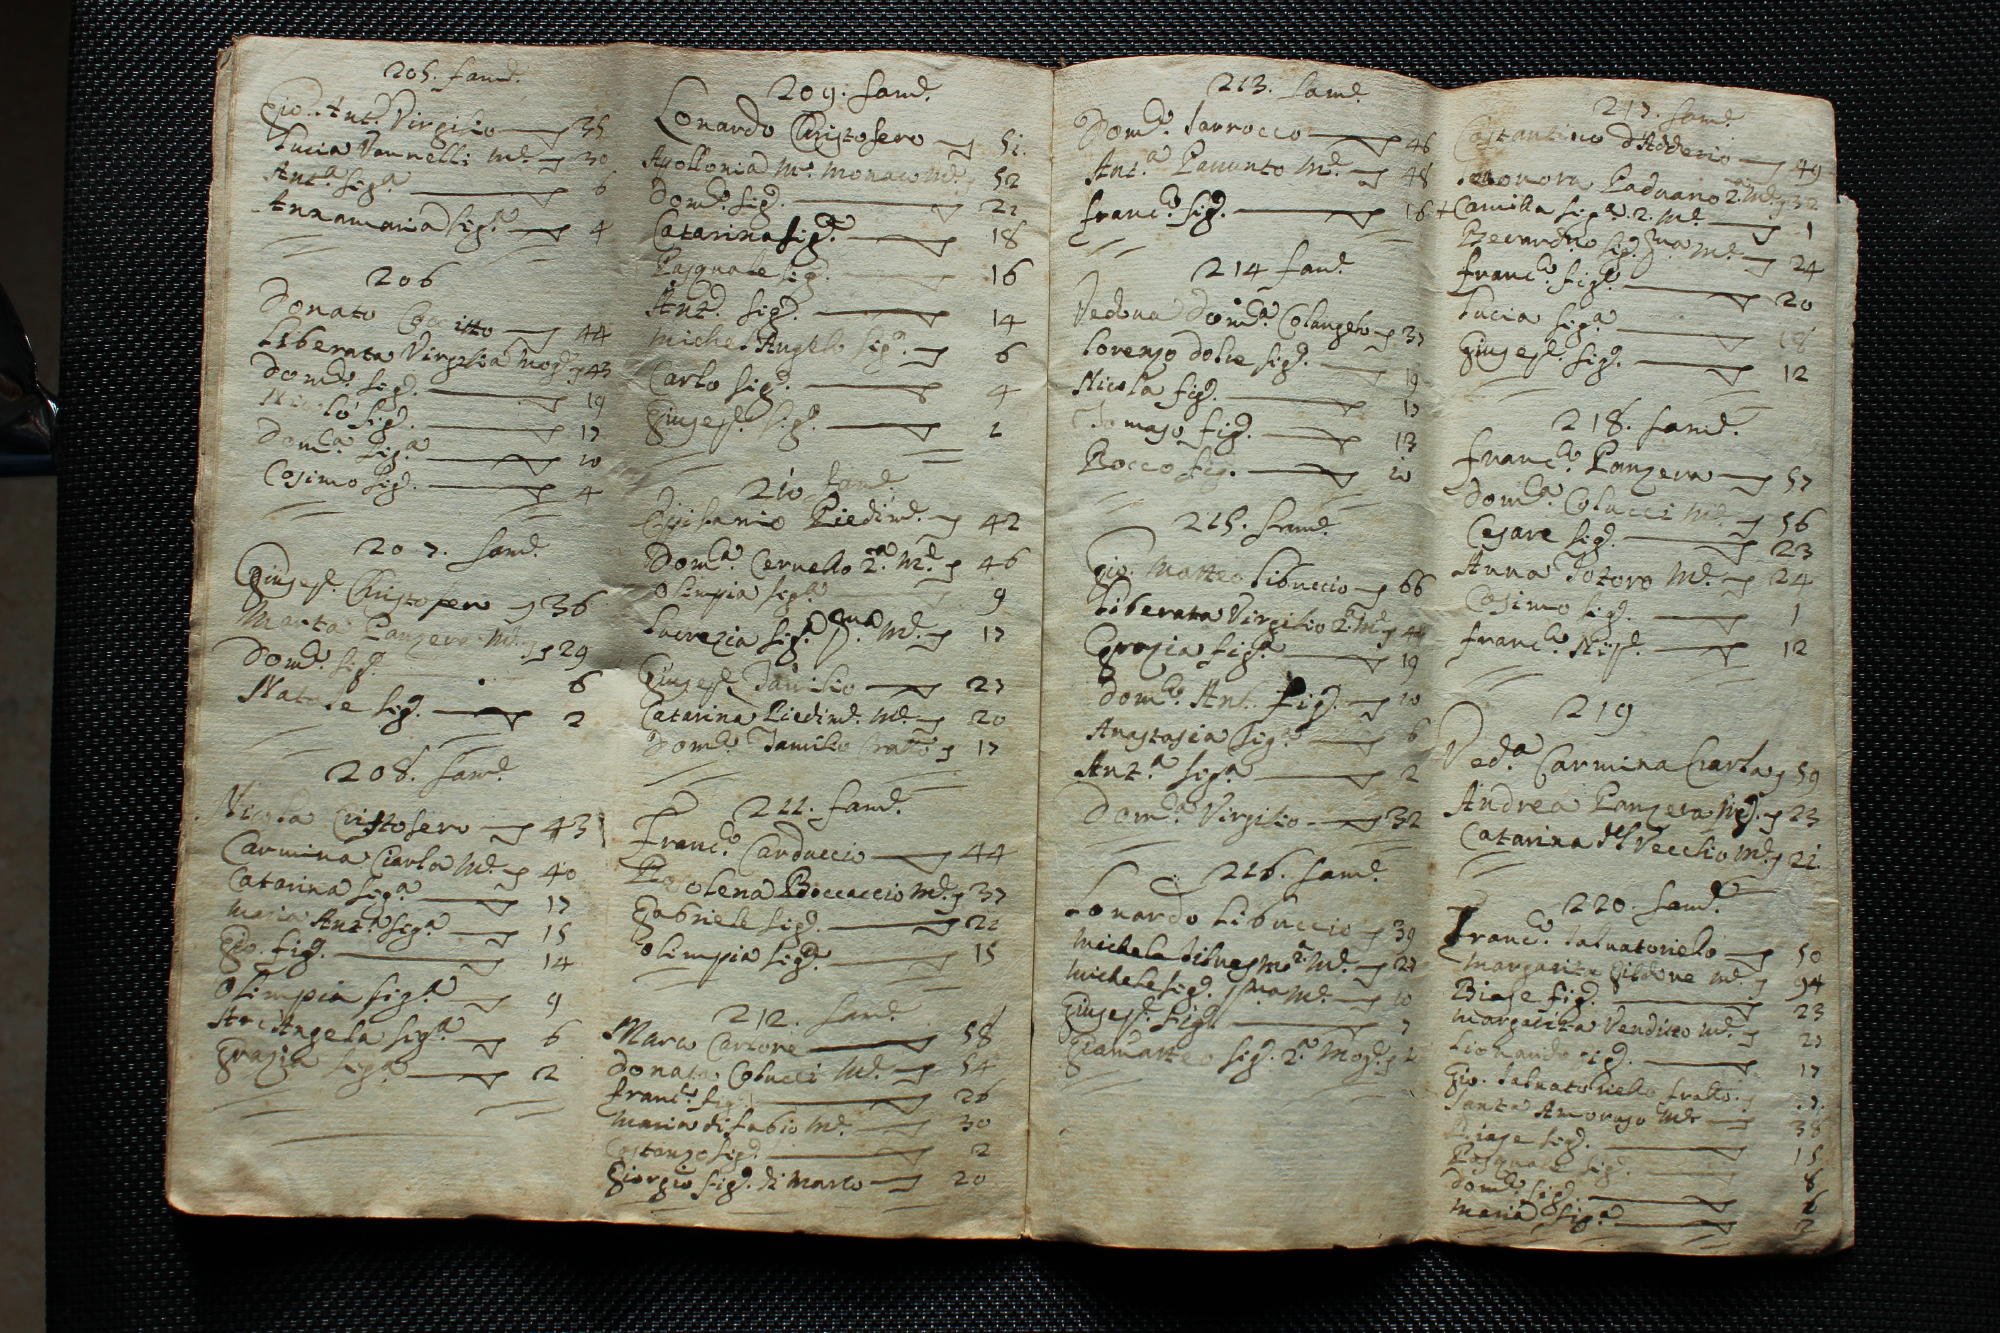 205. fam.ª
Gio: Ant.º Virgilio 35
Lucia Vannelli M.e 30
Ant.a fig.a 6
Annamaria fig.a 4
206
Donato 44
Liberata Virgilia mog.e 43
Dom.co fig.o 19
Nicolò fig.o 17
Dom.ca fig.a 10
Cosimo fig.o 4
207. fam.a
Giusep.e Cristofero 36
Marta Panzera M.e 29
Dom.co fig.o 6
Natale fig.o 2
208. fam.a
Nicola Cristofero 43
Carmina Ciarla M.e 40
Catarina fig.a 17
Maria Ant.a fig.a 15
Gio. fig.o 14
Olimpia fig.a 9
Arc'Angela fig.a 6
Grazia fig.a 2
209. fam.a
Lonardo Cristofero 51
Apollonia M.a Monaco M.e 52
Dom.co fig.o 21
Catarina fig.a 18
Pasquale fig.o 16
Ant.o fig.o 14
Michel'Angelo fig.o 6
Carlo fig.o 4
Giusep.e fig.o 1
210. fam.a
Epifanio Piedim.e 42
Dom.ca Cervello 2.a M.e 46
Olimpia fig.a 9
Lucrezia fig.a p.ma M.e 17
Giusep.e Iamilio 27
Catarina Piedim.e M.e 20
Dom.co Iamilio fratello 17
211. fam.a
Franc.o Carduccio 44
Boccaccio M.e 37
Gabriele fig.o 22
Olimpia fig.a 15
212. fam.a
Marco Carbone 58
Donata Colucci M.e 54
Franc.o fig.o 26
Maria di Fabio M.e 30
Costanzo fig.o 2
Giorgio fig.o di Marco 20
213. fam.a
Dom.co Iarrocco 46
Ant.a Panunto M.e 48
Franc.o fig.o 16
214 fam.a
Vedova Dom.ca Colangelo 37
Lorenzo Dolce fig.o 19
Nicola fig.o 17
Tomaso fig.o 13
Rocco fig.o 10
215. fam.a
Gio. Matteo Libuccio 66
Liberata Virgilio 2.a M.e 44
Grazia fig.a 19
Dom.co Ant.o fig.o 10
Anastasia fig.a 6
Ant.a fig.a 2
Dom.ca Virgilio 32
216. fam.a
Lonardo Libuccio 39
Michela 2.a M.e 27
Michele fig.o p.ma M.e 10
Giusep.e fig.o 7
Giamatteo fig.o 2.a mog.e
217. fam.a
Costantino d'Adderio 49
Leonora Paduano 2.a M.e 32
+ Camilla fig.a 2. M.e 1
Berardino fig.o p.ma M.e 24
Franc.o fig.o 20
Lucia fig.a 18
Giusep.e fig.o 12
218. fam.a
Franc.o Panzera 57
Dom.ca Colucci M.e 56
Cesare fig.o 23
Anna Totoro M.e 24
Cosimo fig.o 1
Franc.o Nip.e 12
219
Ved.a Carmina Ciarla 59
Andrea Panzera fig.o 23
Catarina del Vecchio M.e 21
220. fam.a
Franc.o Saluatoriello 50
Margarita M.e
Biase fig.o 23
Margarita Venditto M.e 27
Lionardo fig.o 17
Gio. Saluatoriello fratello
Santa Amoroso M.e 38
Biase fig.o 15
Pasquale fig.o 8
Dom.co fig.o 6
Maria fig.a 2